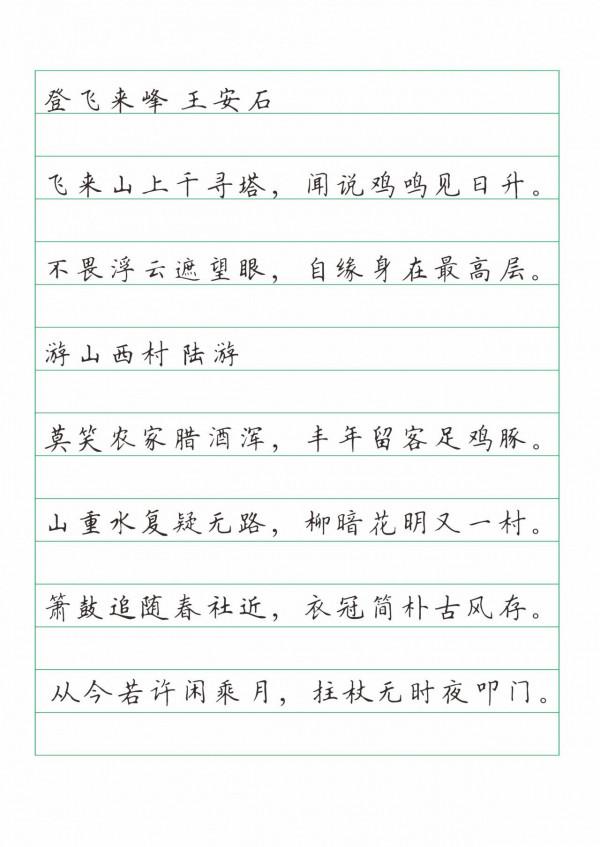 登飞来峰 王安石
飞来山上千寻塔，闻说鸡鸣见日升。
不畏浮云遮望眼，自缘身在最高层。
游山西村 陆游
莫笑农家腊酒浑，丰年留客足鸡豚。
山重水复疑无路，柳暗花明又一村。
箫鼓追随春社近，衣冠简朴古风存。
从今若许闲乘月，拄杖无时夜叩门。